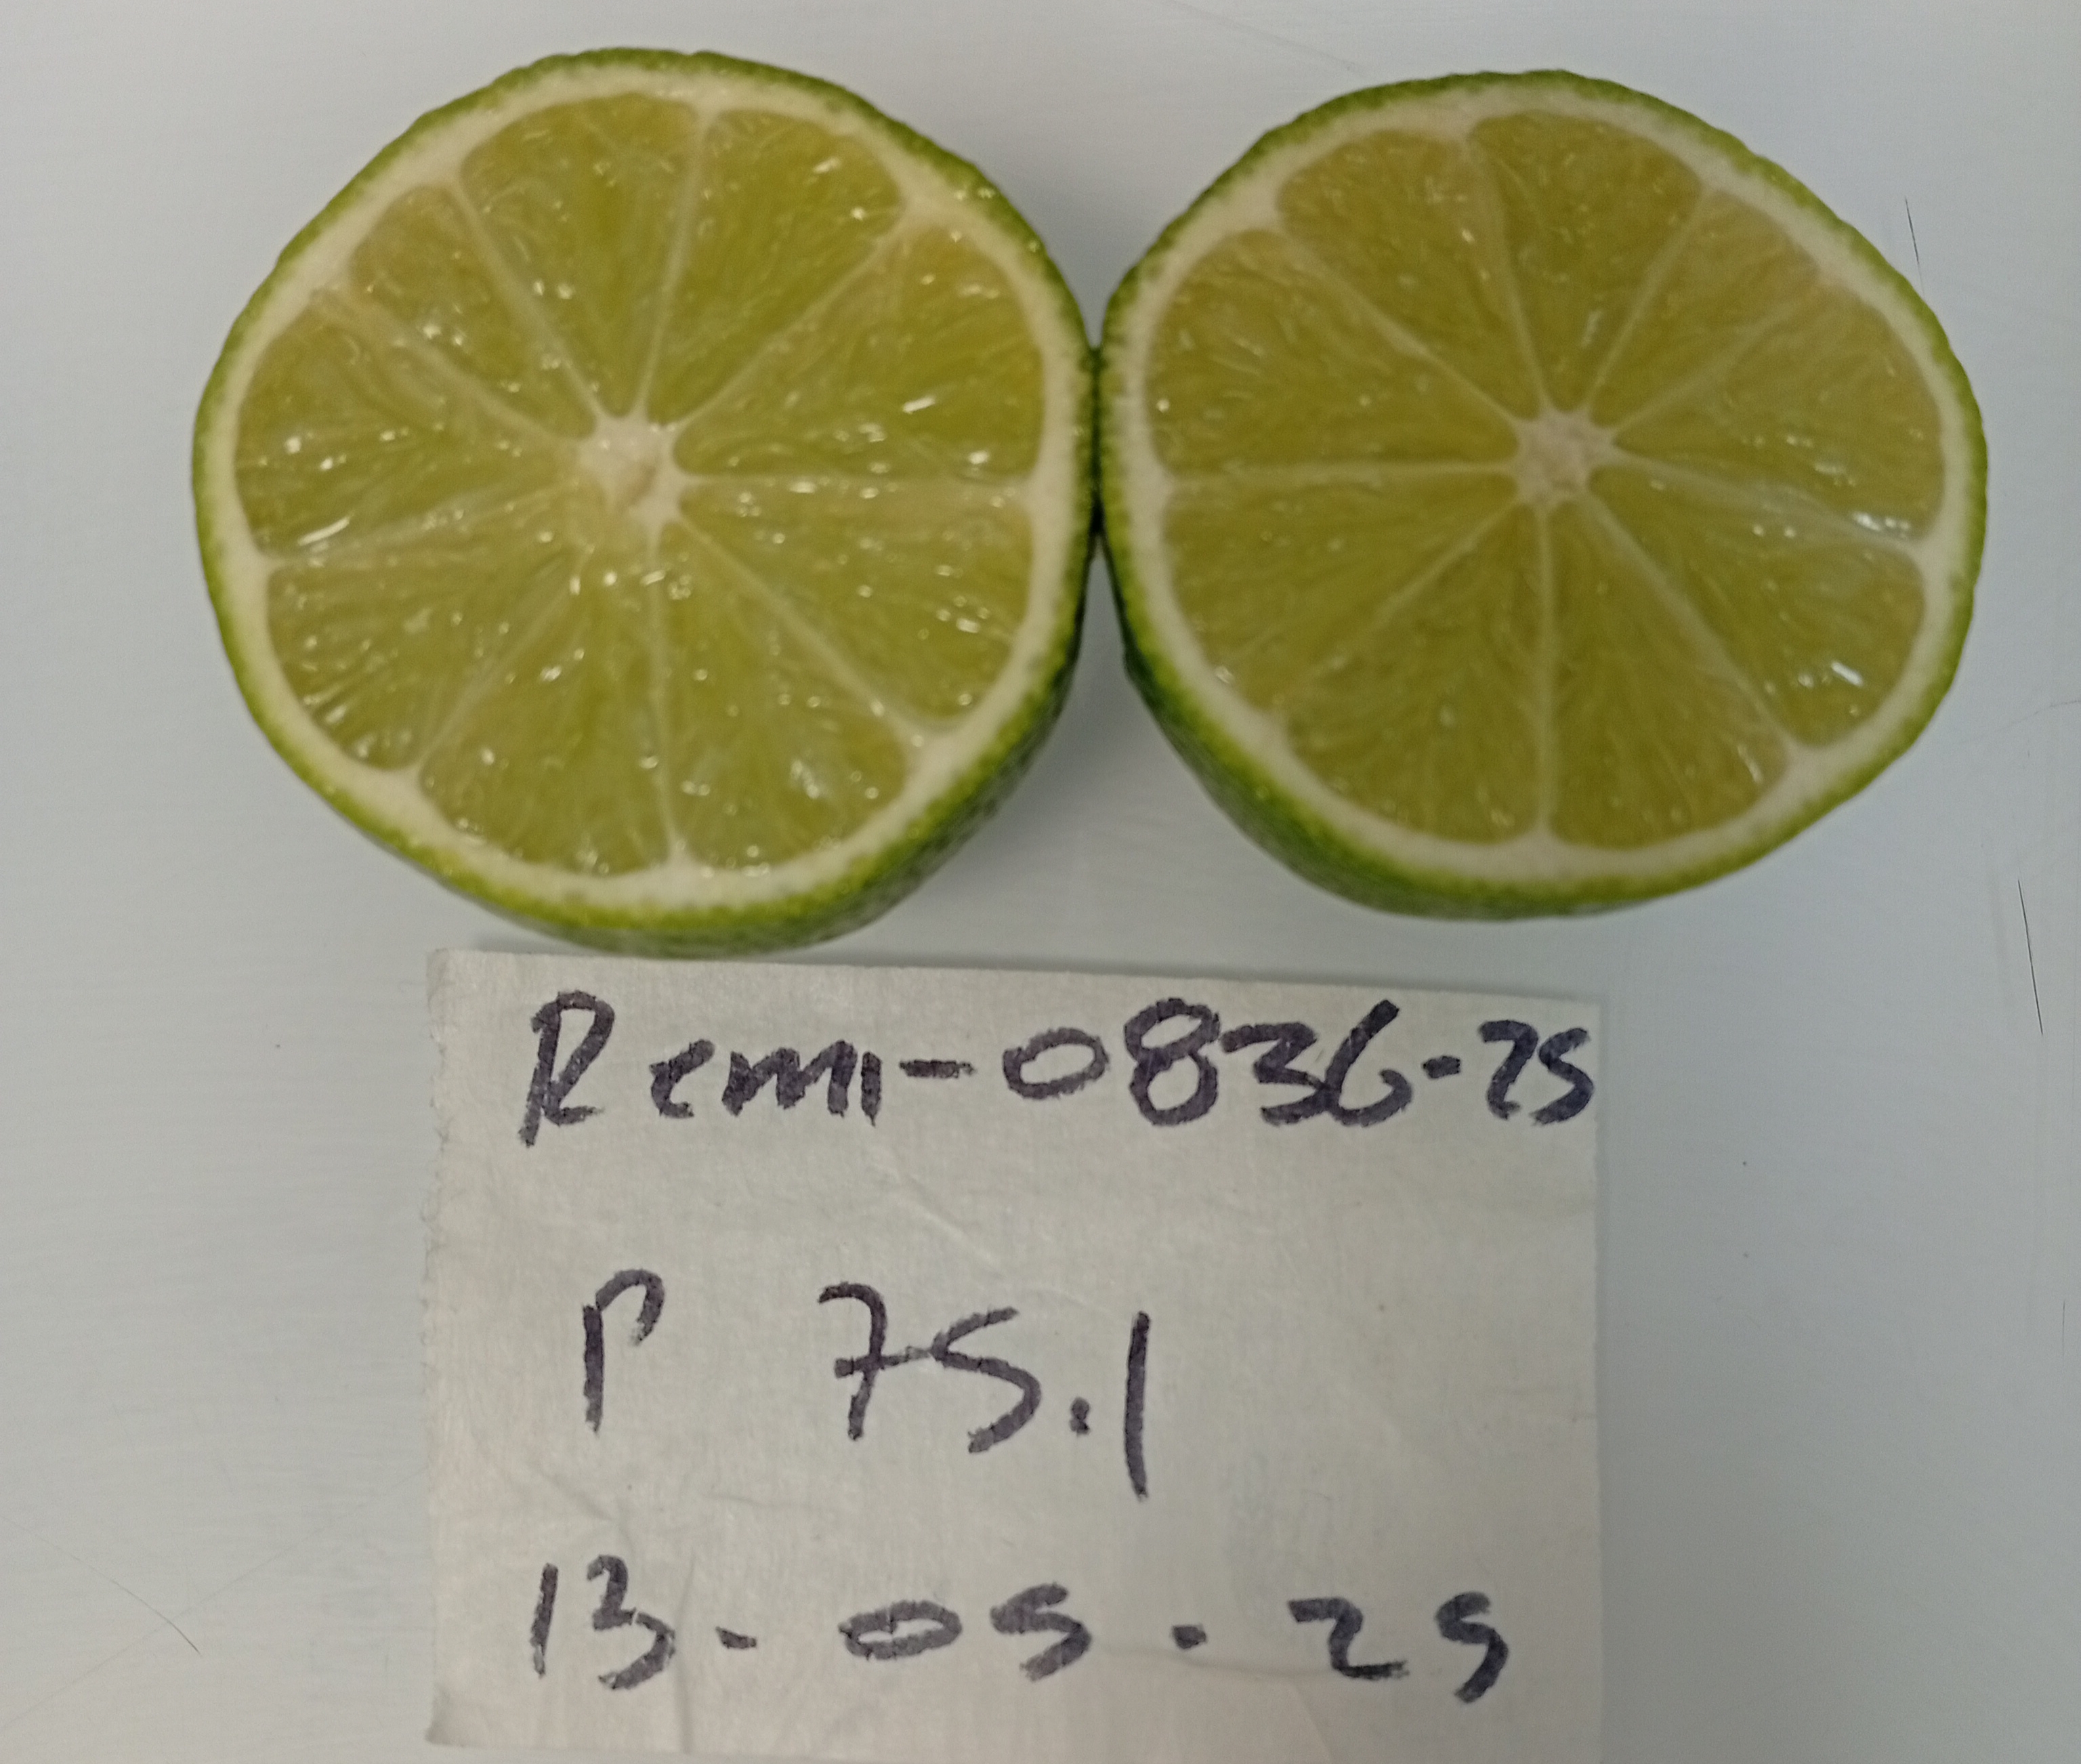 Remi-0836-25
P 75.1
13-05-25